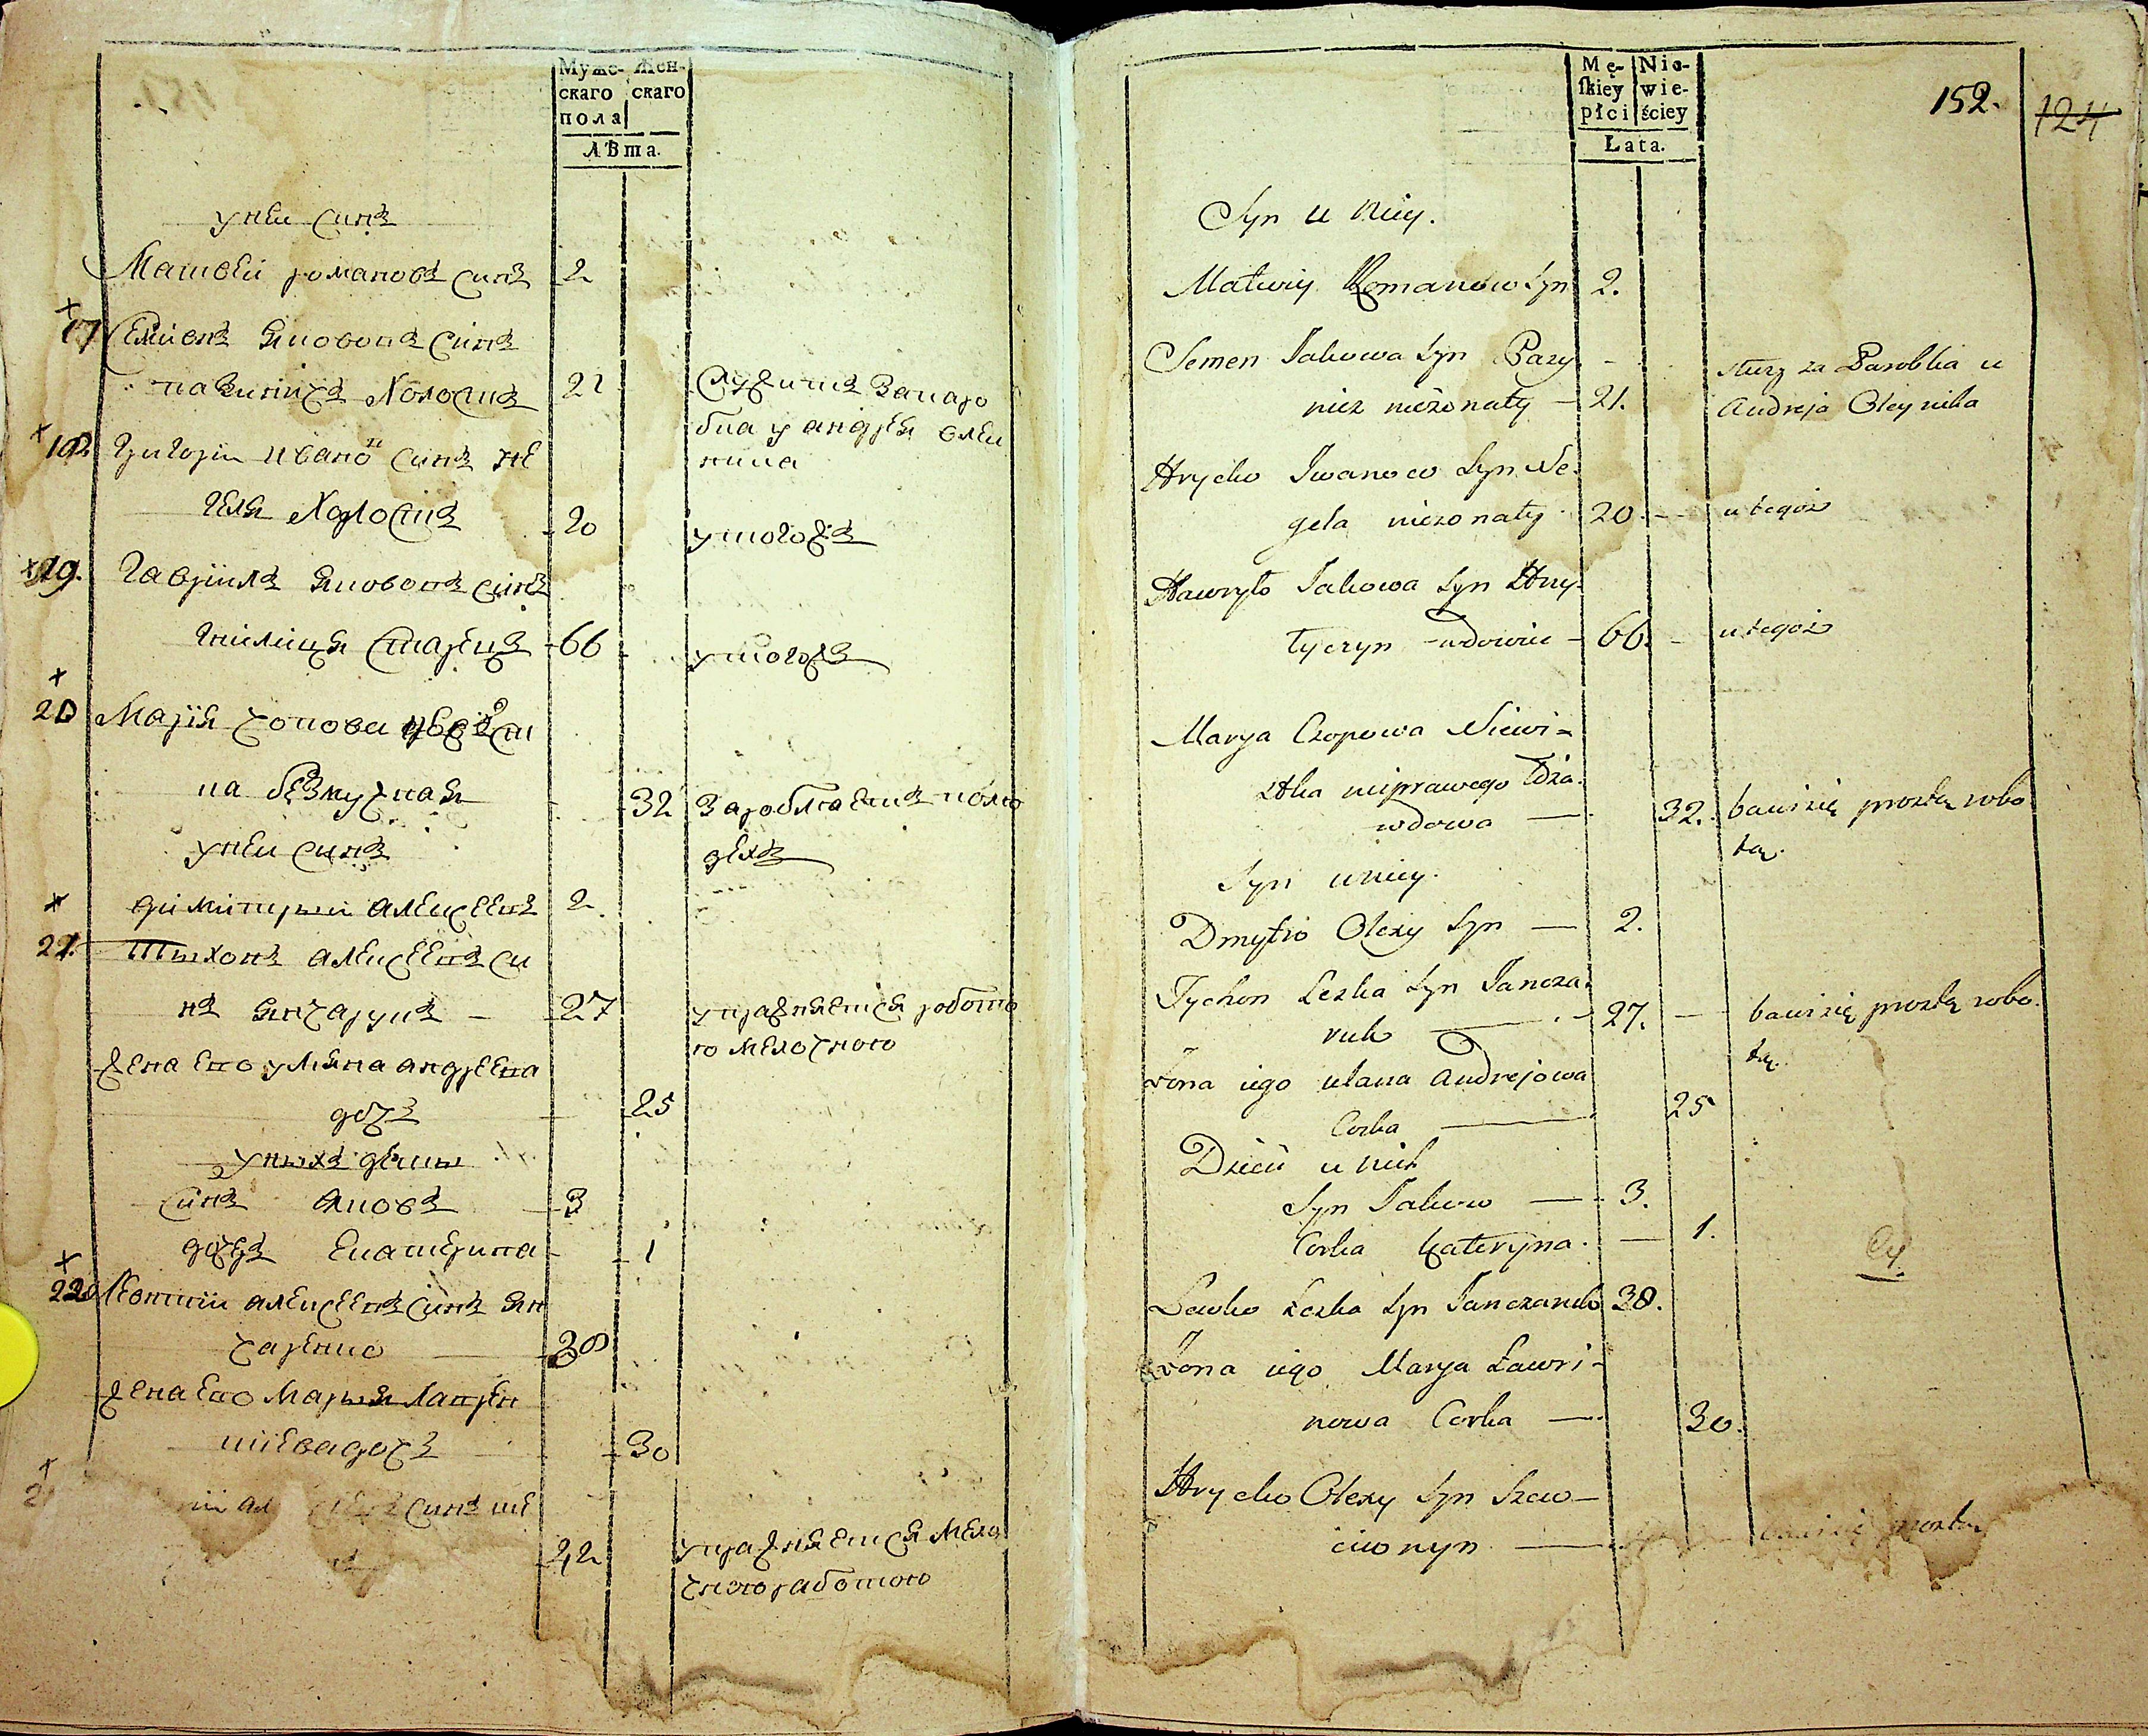 Муже-
скаго
пола
Жен-
скаго
ЛѢта.
у неи синъ
Матвѣй романовъ синъ 2
17 Семіонъ яковопъ синъ
холостъ 21 служитъ запаро
бка у андрея олеи
ника
18 Григорій ивано синъ не
геля холостъ 20 у тогожъ
19. Гавріилъ яковопъ синъ
гнилиця старецъ 66 у тогожъ
20 Марія чопова
ка безмужная 32 заробляетъ
у неи синъ
димитрий алексеевъ 2.
21. Тыхонъ алексеевъ си
нъ янчарукъ - 27 упражняется робото
ю мелочною
жена его уляна андреева
дочъ 25
у ныхъ дѣты
синъ яковъ 3
дочъ екатерина 1
22 Леонтий алексеевъ синъ ян
чаренко 38
жена его марья лаврен
тіева дочъ 30
синъ ше
42 упражняется мело
чною работою
Mę-
skiey
płci
Nie-
wie-
ściey
Łata.
152.
124
Syn u niey.
Matwiy Romanow Syn 2.
Semen Jakowa Syn Pazy
niez nieżonaty - 21. służy za Parobka u
Andreja Oleynika
Hryćko Iwanow Syn Ne
gela nieżonaty 20 - u tegoż
Hawryło Jakowa Syn Hny-
tyczyn wdowiec - 66. - u tegoż
Marya Czopowa Niewi-
stka nieprawego łoża
wdowa — 32. bawi się prostą robo
tą.
Syn u niey.
Dmytro Olexy Syn — 2.
Tychon Leszka Syn Jancza
ruk — 27. — bawi się prostą robo.
tą.
Żona iego Ulana Andrejowa
Corka — 25
Dzieci u nich
Syn Jakow — 3.
Corka Kateryna. — 1.
Lewko Leszka Syn Janczaruk 38.
Żona iego Marya Ławri-
nowa Corka — 30.
Hryćko Olexy Syn Szew-
ciwnyn — bawi się prostą